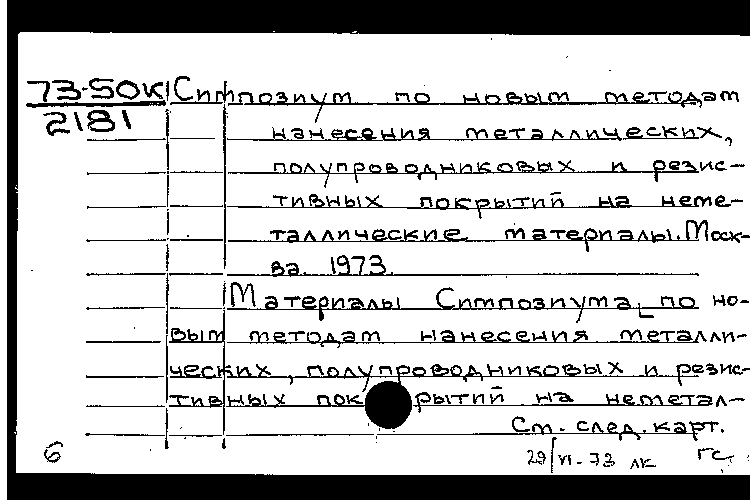 73-50К Симпозиум по новым методам
2181 нанесения металлических,
полупроводниковых и резис-
тивных покрытий на неме-
таллические материалы. Моск-
ва. 1973.
Материалы Симпозиума по но-
вым методам нанесения металли-
ческих, полупроводниковых и резис-
тивных покрытий на неметал-
См. след. карт.
6 29/VI-73 лк